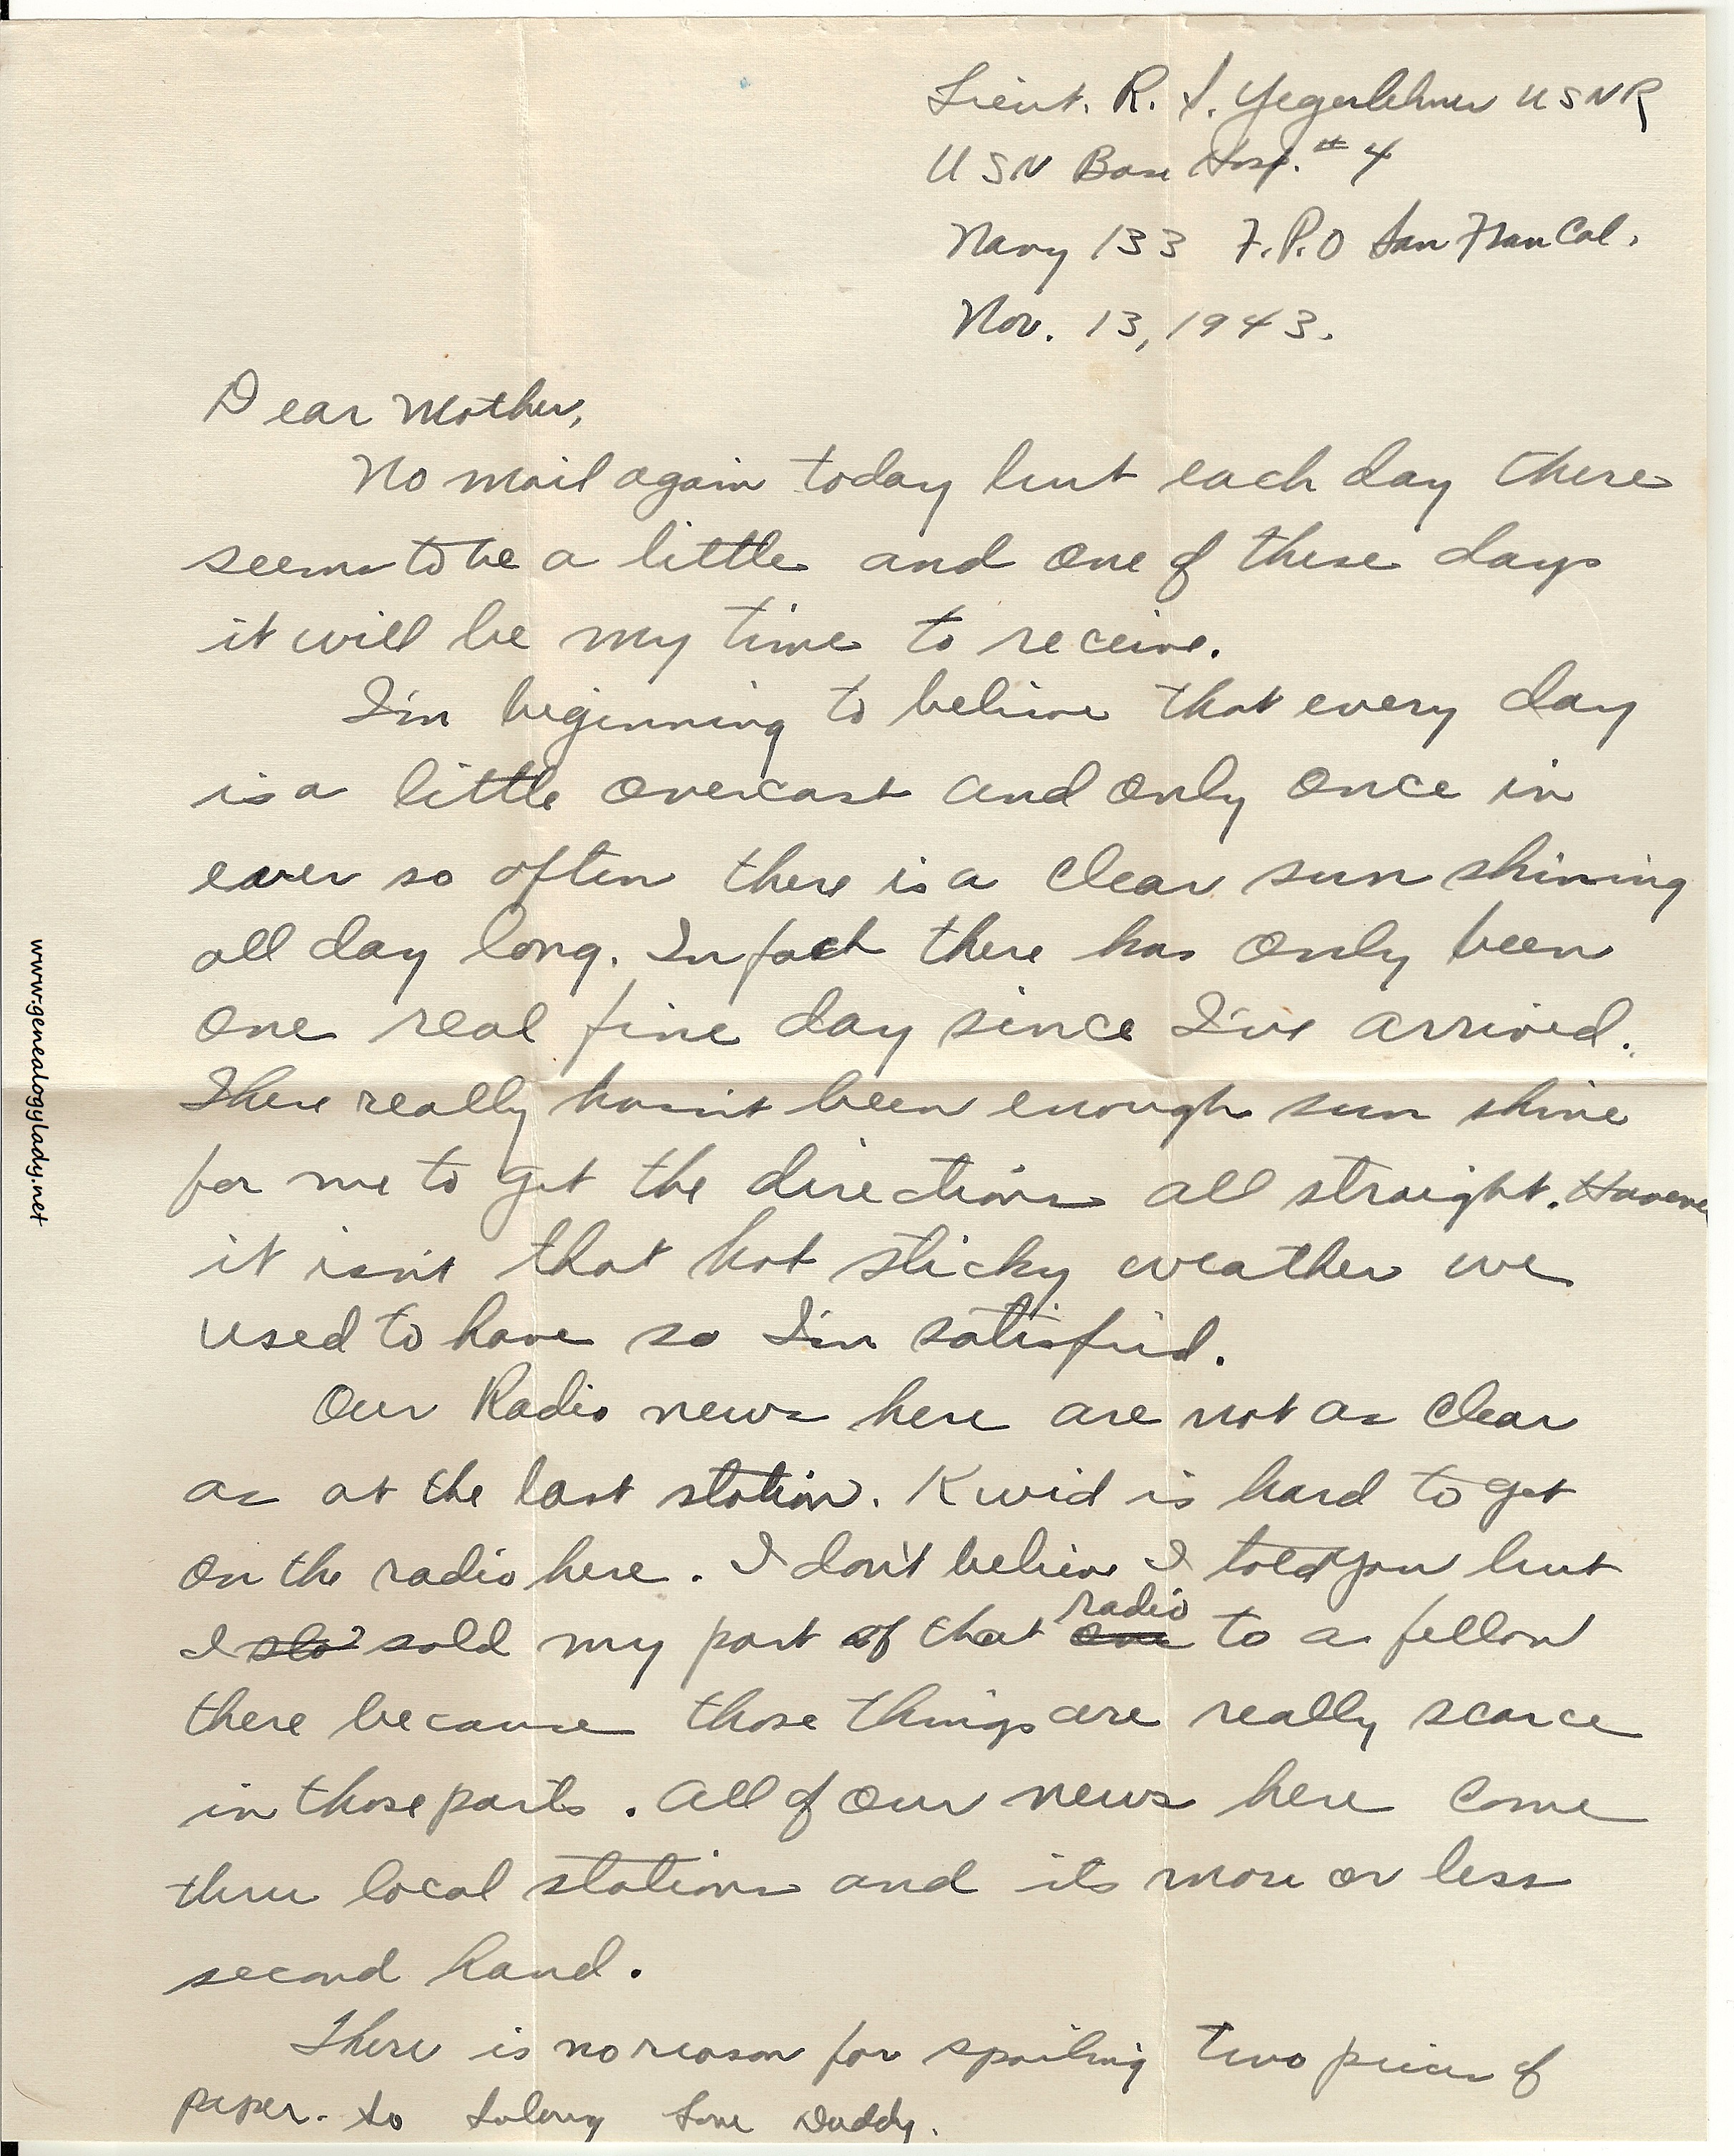 Lieut. R. I. Yegerlehner USNR
USN Base Hosp. # 4
Navy 133 F.P.O San Fran Cal.
Nov. 13, 1943.
Dear Mother,
No mail again today but each day there
seems to be a little and one of these days
it will be my time to receive.
I'm beginning to believe that every day
is a little overcast and only once in
ever so often there is a clear sun shining
all day long. In fact there has only been
one real fine day since I've arrived.
There really hasn't been enough sun shine
for me to get the directions all straight. However
it isn't that hot sticky weather we
used to have so I'm satisfied.
Our Radio news here are not as clear
as at the last station. Kwid is hard to get
on the radio here. I don't believe I told you but
I slo sold my part of that one radio to a fellow
there because those things are really scarce
in those parts. All of our news here come
thru local stations and its more or less
second hand.
There is no reason for spoiling two pieces of
paper. So Solong Love Daddy.
www.genealogylady.net